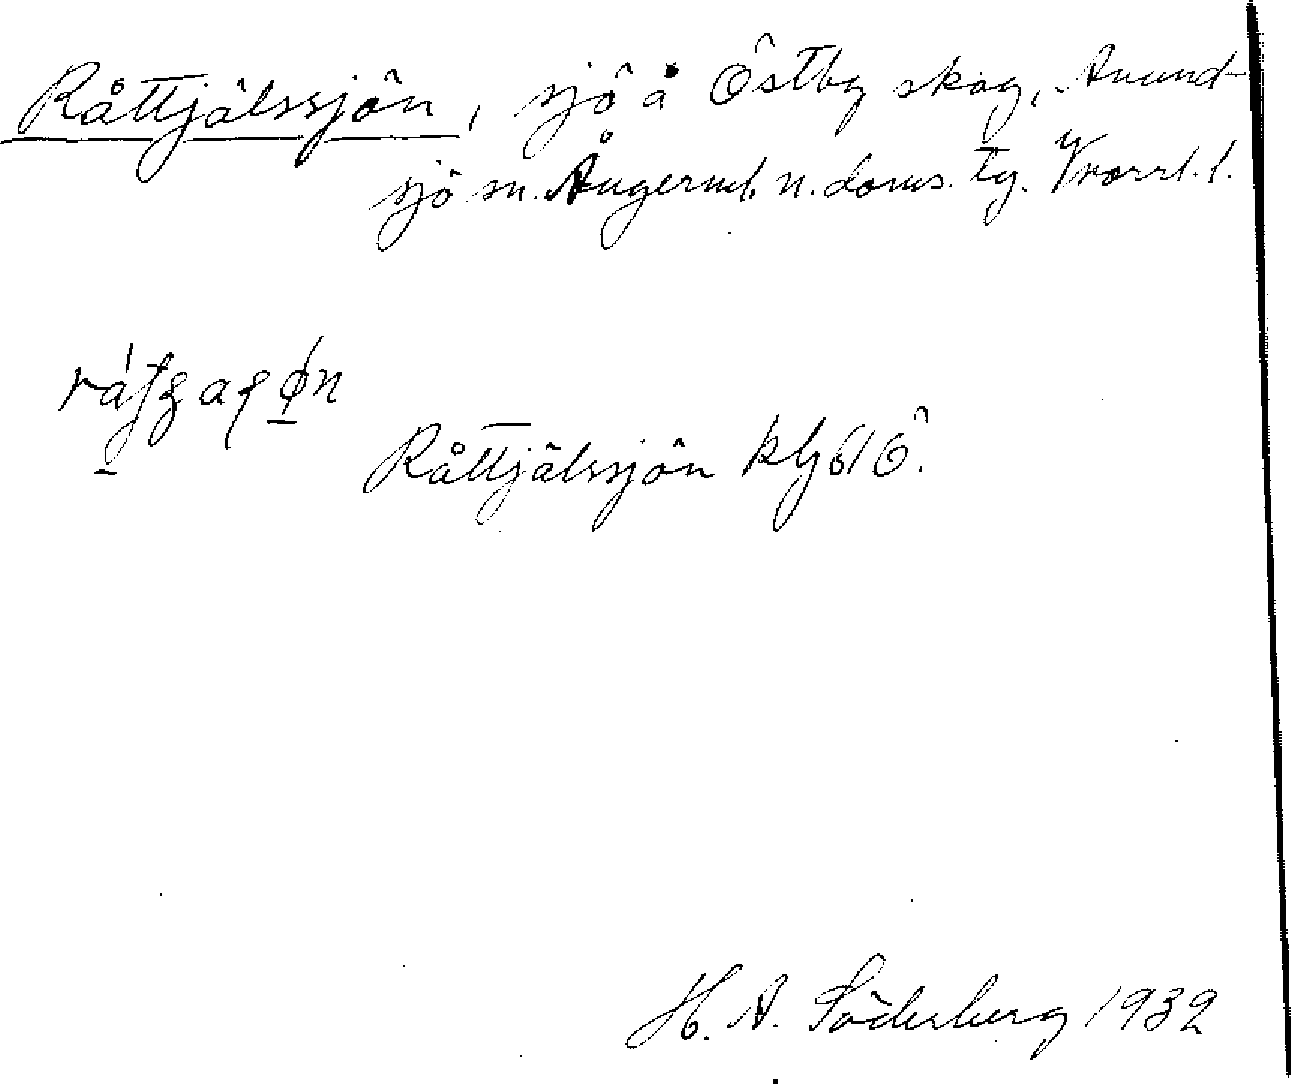 Råttjälssjön, sjö å Östby skog, Anund-
sjö sn. Ångerml. n. doms. tg. Vnorrl. l.
Råttjälssjön kbl 61 Ö.
H. A. Söderberg 1932